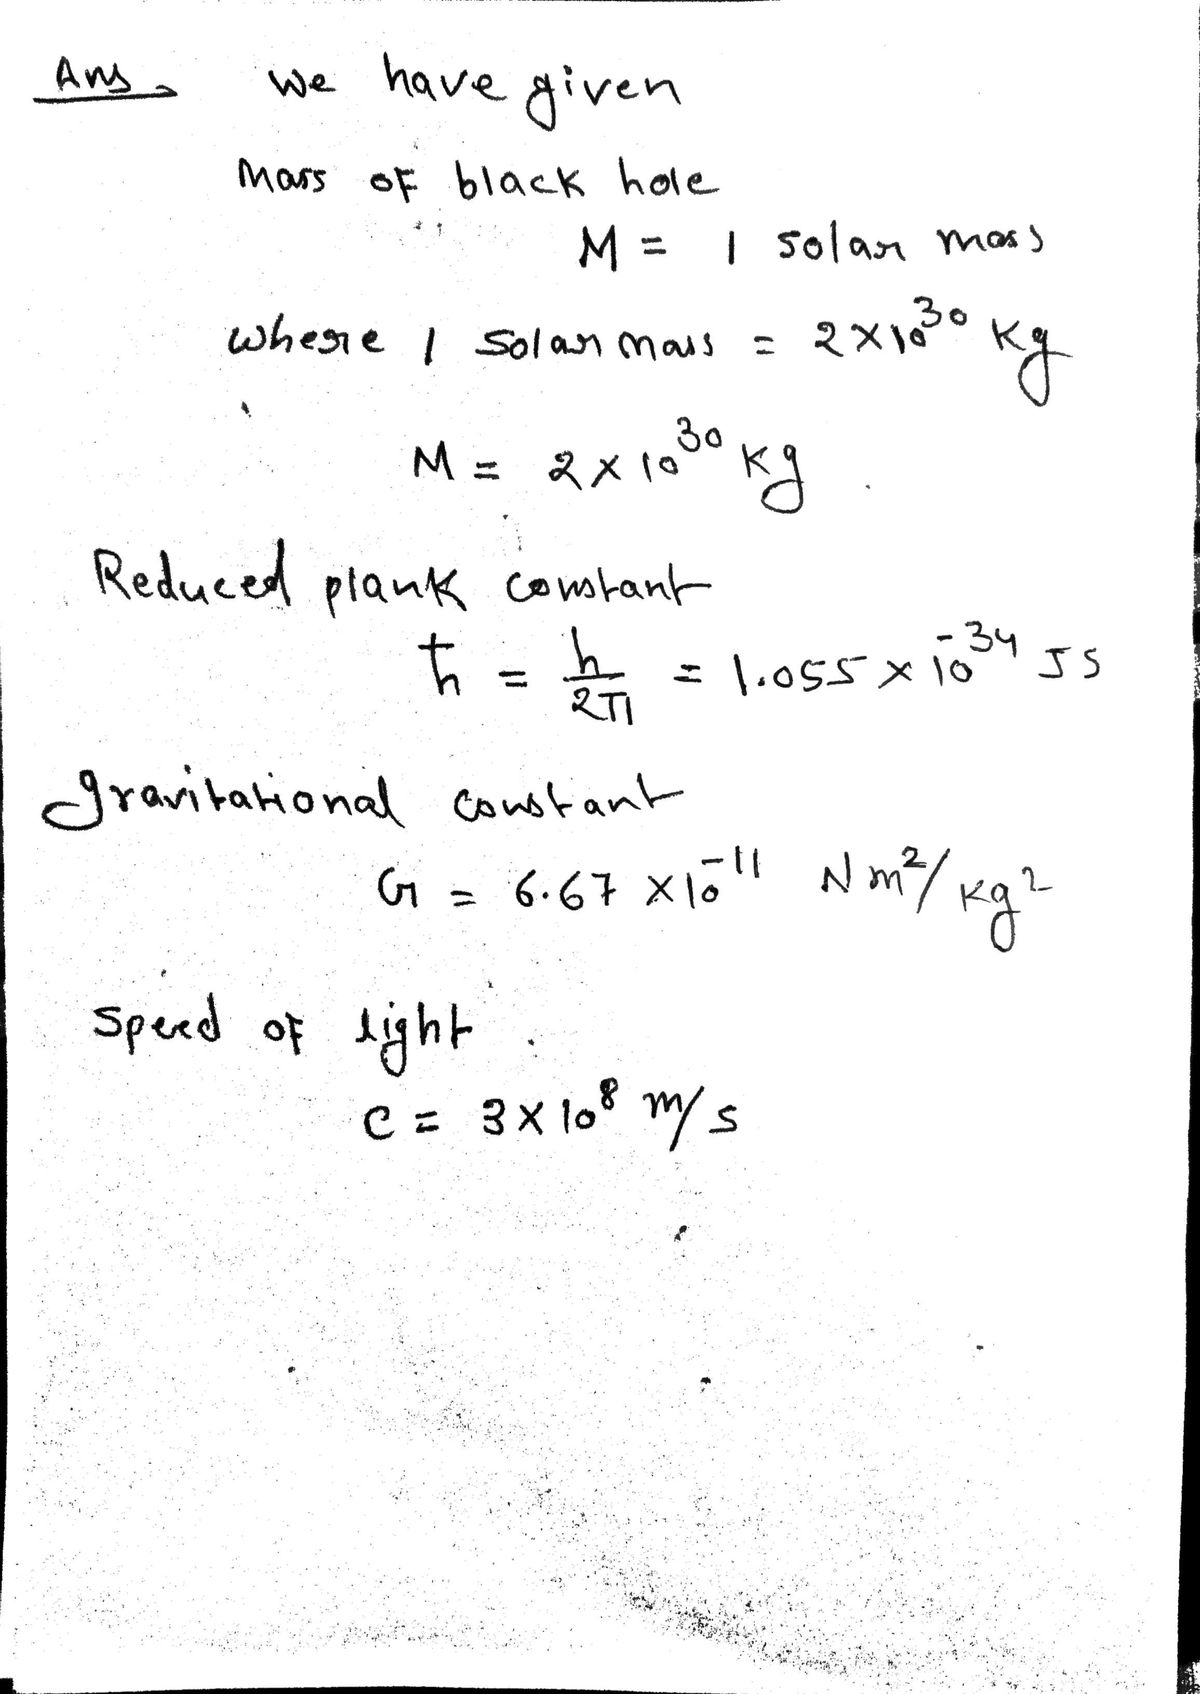 Ans, we have given
Mass of black hole
M = 1 solar mass
where 1 solar mass = 2×10³⁰ kg
M = 2×10³⁰ kg
Reduced plank constant
ħ = h/2π = 1.055×10⁻³⁴ JS
gravitational constant
G = 6.67×10⁻¹¹ Nm²/kg²
speed of light
c = 3×10⁸ m/s